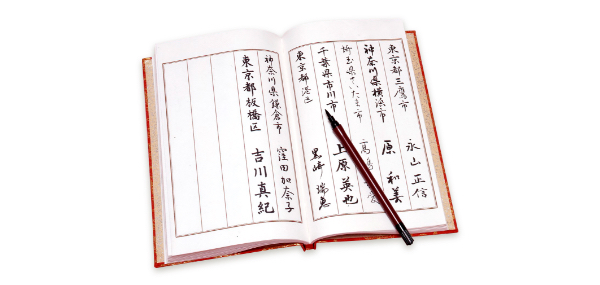 東京都三鷹市 永山正信
神奈川県横浜市 原和美
埼玉県さいたま市 高
千葉県市川市 上原英也
東京都港区 黒崎瑞恵
神奈川県鎌倉市 窪田加奈子
東京都板橋区 吉川真紀